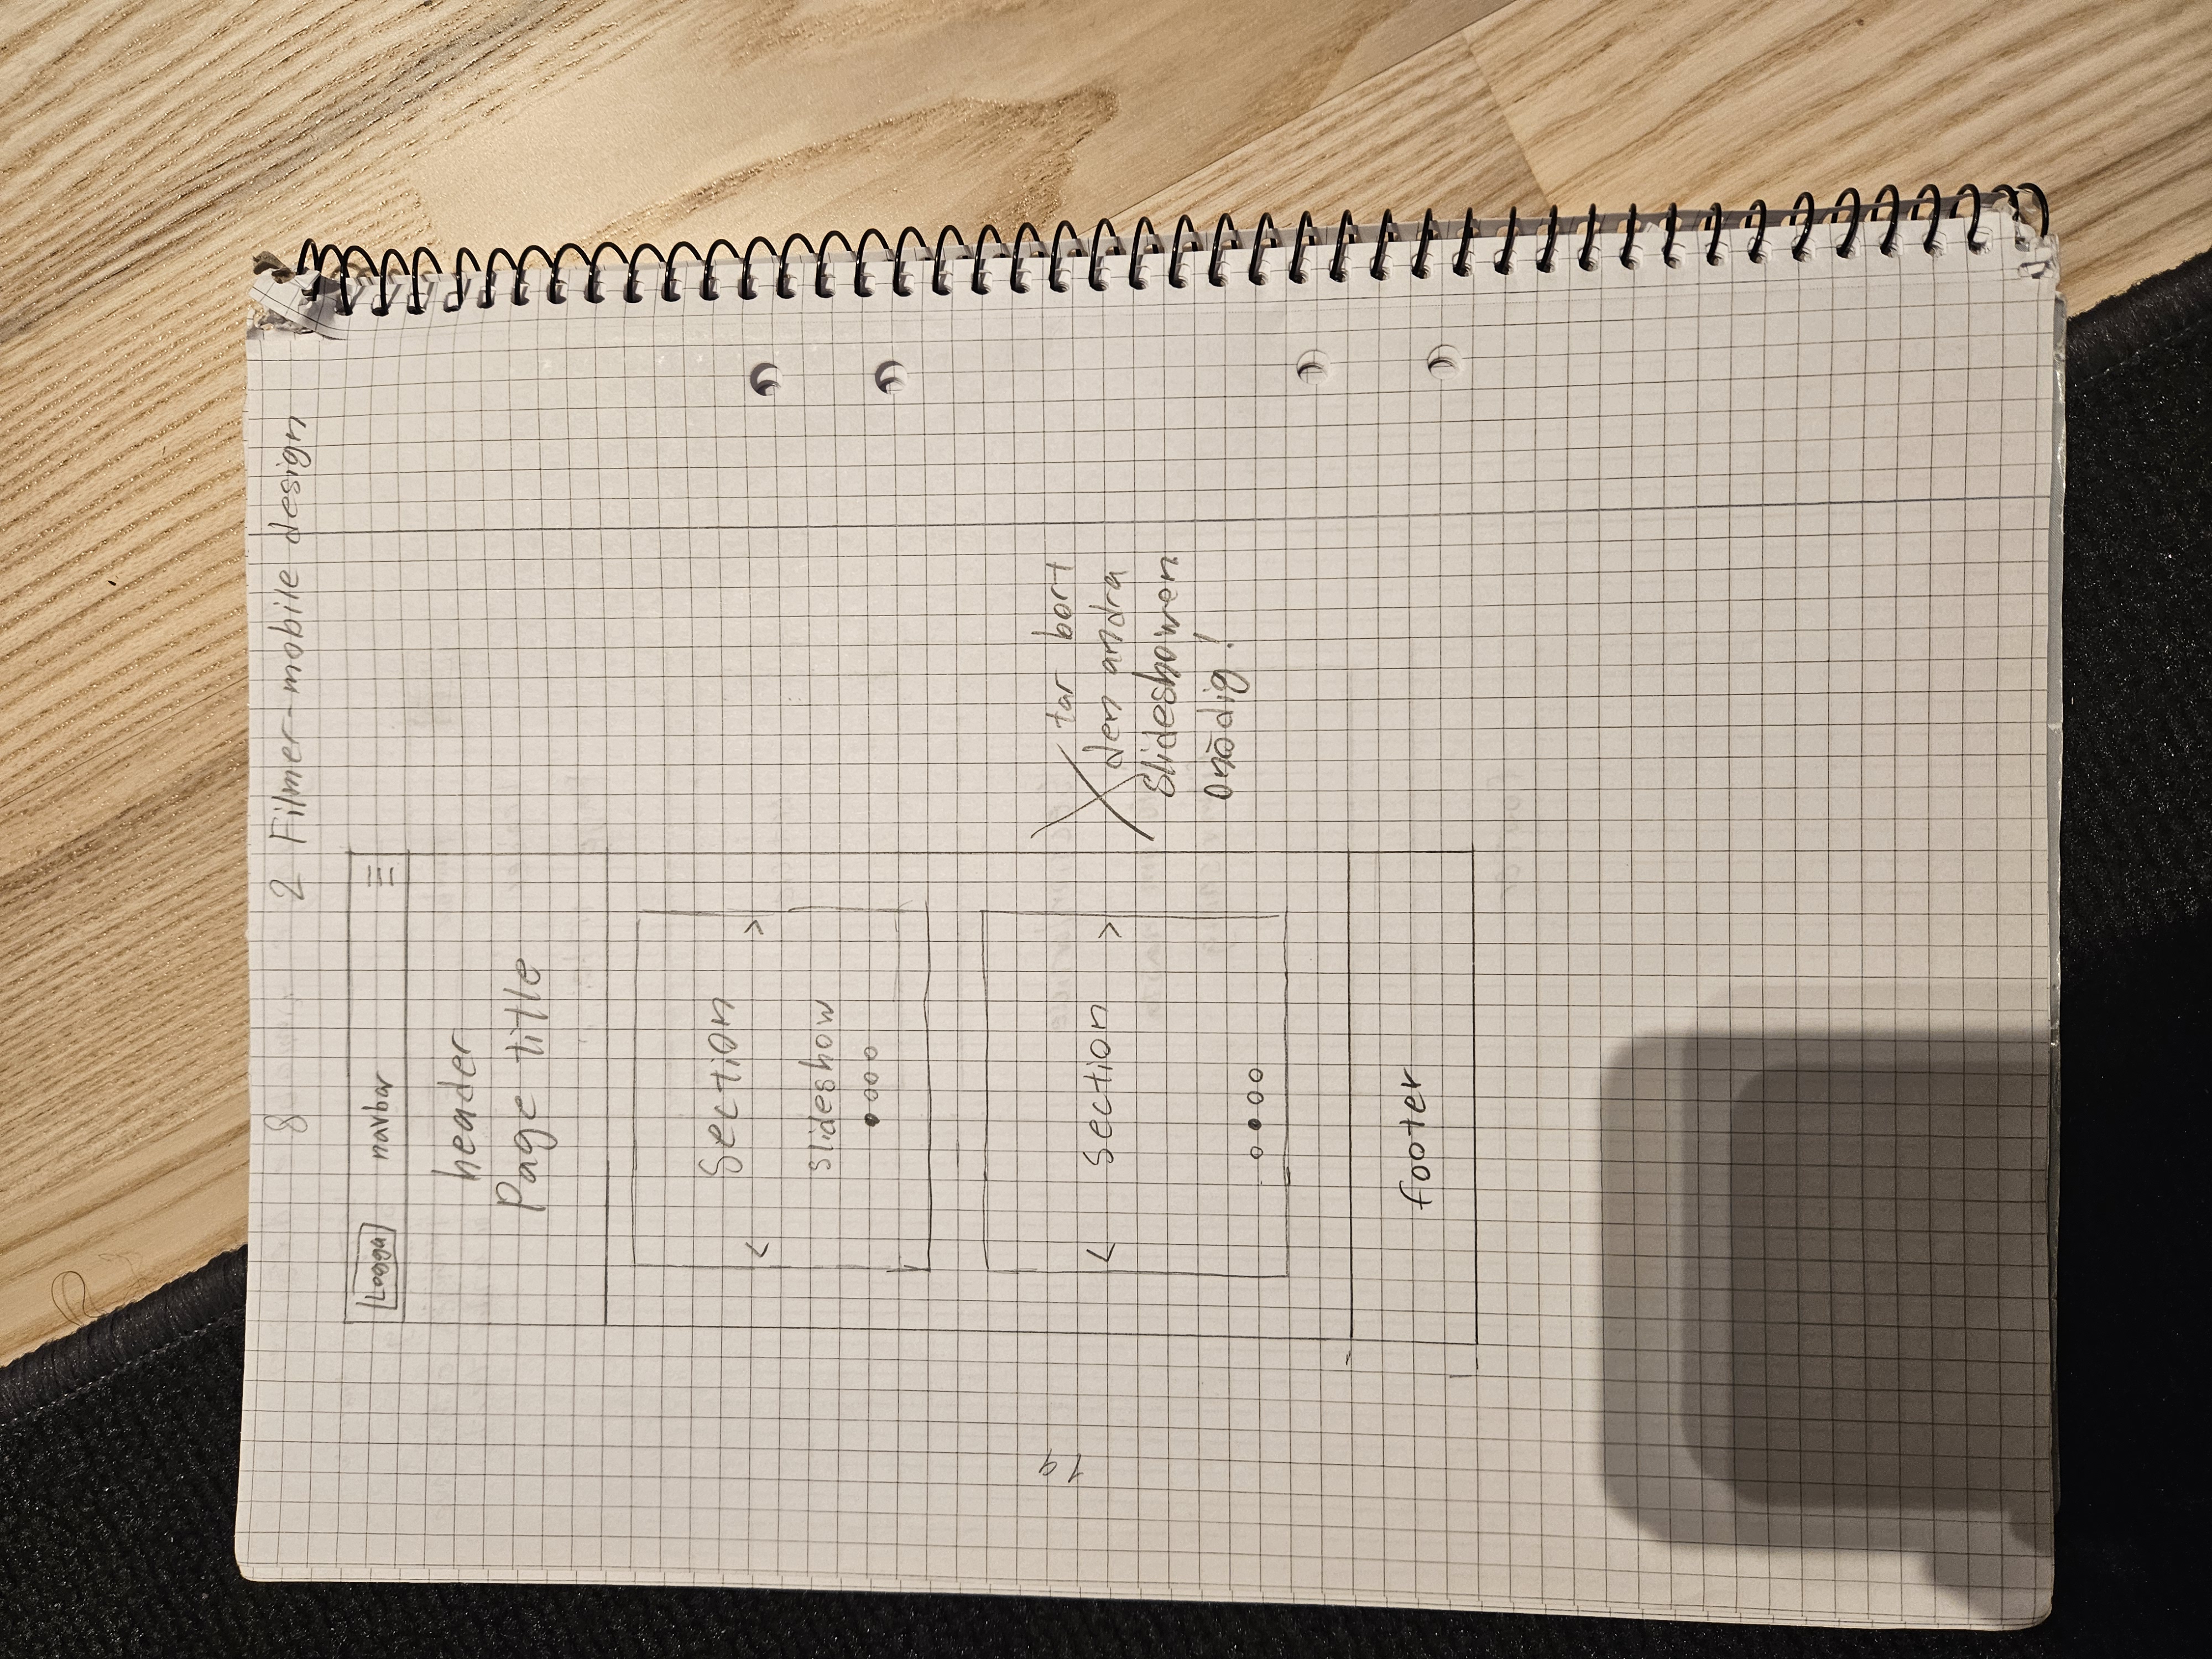 8
2 Filmer-mobile design
Logga navbar
header
Page title
Section
< >
slideshow
19
< section >
tar bort
den andra
slideshowen
onödig!
footer